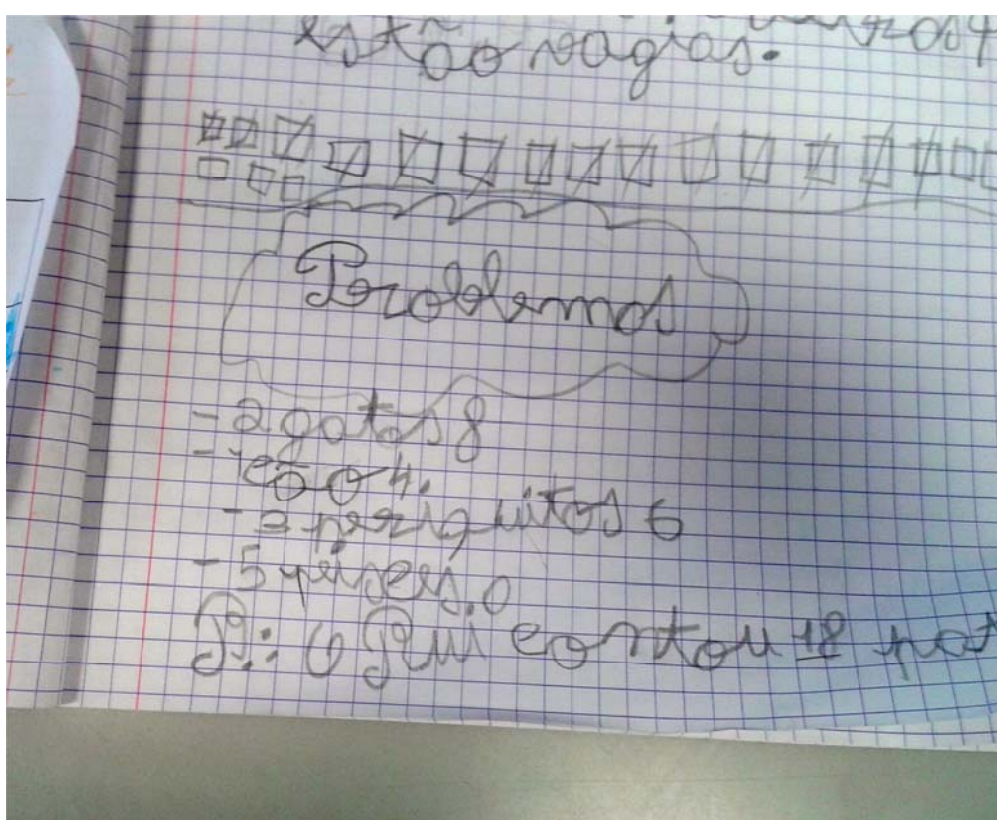 estão vagias.
Problemas
- 2 gatos 8
- 1 cão 4.
- 3 periquitos 6
- 5 peixes. 0
R.: O Rui contou 18 pat